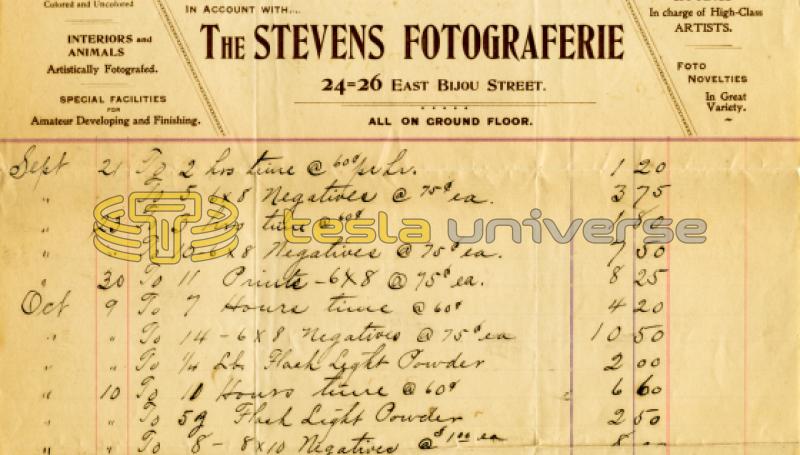 Colored and Uncolored
INTERIORS and
ANIMALS
Artistically Fotografed.
SPECIAL FACILITIES
FOR
Amateur Developing and Finishing.
IN ACCOUNT WITH...
THE STEVENS FOTOGRAFERIE
24=26 EAST BIJOU STREET.
ALL ON GROUND FLOOR.
In charge of High-Class
ARTISTS.
FOTO
NOVELTIES
In Great
Variety.
Sept 21 To 2 hrs time @ 60¢ pr hr. 1 20
" To 5 6x8 Negatives @ 75¢ ea. 3 75
" 23 hrs time @ 60¢ 1 80
" 10 6x8 Negatives @ 75¢ ea. 7 50
" 30 To 11 Prints - 6X8 @ 75¢ ea. 8 25
Oct 9 To 7 Hours time @ 60¢ 4 20
" " To 14 - 6X8 Negatives @ 75¢ ea 10 50
" " To 1/4 Lb. Flash Light Powder 2 00
" 10 To 11 Hours time @ 60¢ 6 60
" " To 5 Flash Light Powder 2 50
" " To 8 - 8X10 Negatives @ $1.00 ea 8
tesla universe